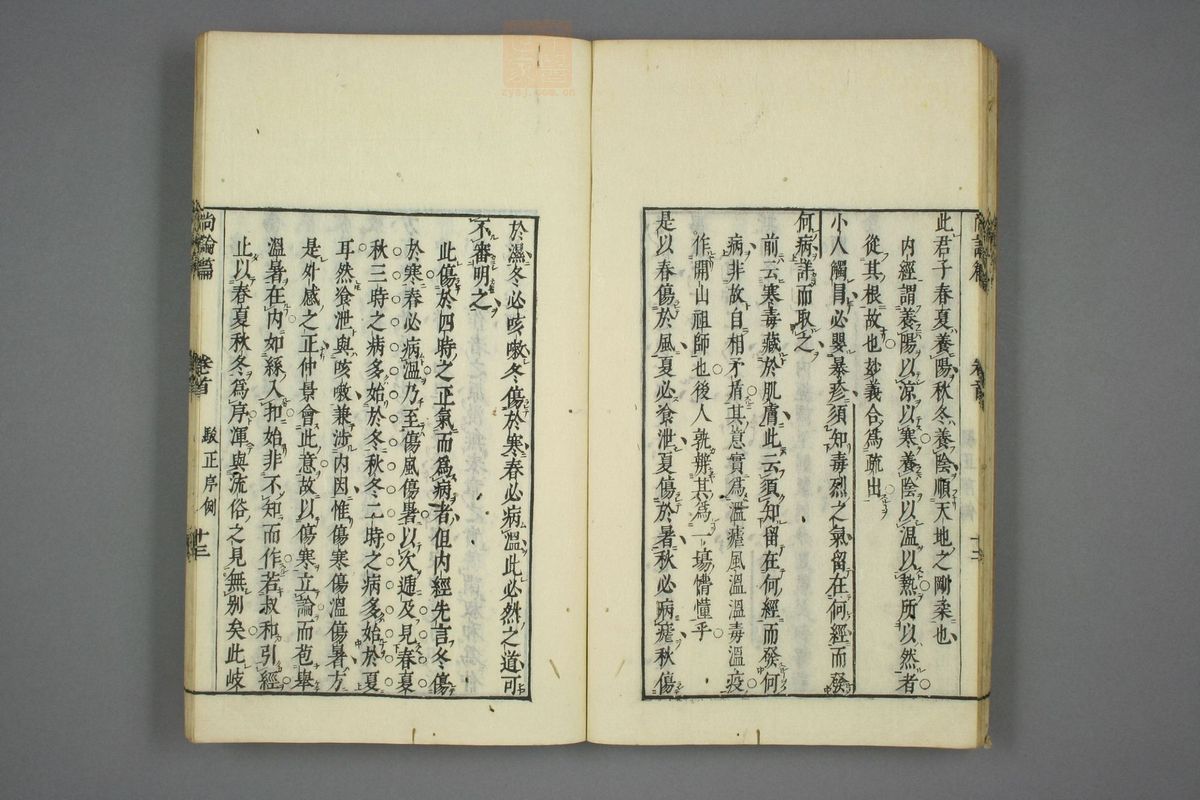 此君子春夏養陽秋冬養陰順天地之剛柔也
內經謂養陽以涼以寒養陰以温以熱所以然者
從其根故也妙義合爲疏出
小人觸冒必嬰暴疹須知毒烈之氣留在何經而發
何病詳而取之
前云寒毒藏於肌膚此云須知留在何經而發何
病非故自相矛盾其意實爲溫瘧風溫溫毒溫疫
作開山祖師也後人孰辨其爲一場懵懂乎
是以春傷於風夏必飱泄夏傷於暑秋必病瘧秋傷
於濕冬必咳嗽冬傷於寒春必病溫此必然之道可
不審明之
此傷於四時之正氣而爲病者但內經先言冬傷
於寒春必病溫乃至傷風傷暑以次遞及見春夏
秋三時之病多始於冬秋冬二時之病多始於夏
耳然飱泄與咳嗽兼涉內因惟傷寒傷溫傷暑方
是外感之正仲景會此意故以傷寒立論而苞舉
溫暑在內如絲入扣始非不知而作若叔和引經
止以春夏秋冬爲序渾與流俗之見無別矣此岐
尚論篇
卷首
駁正序例
十三
zysj.com.cn